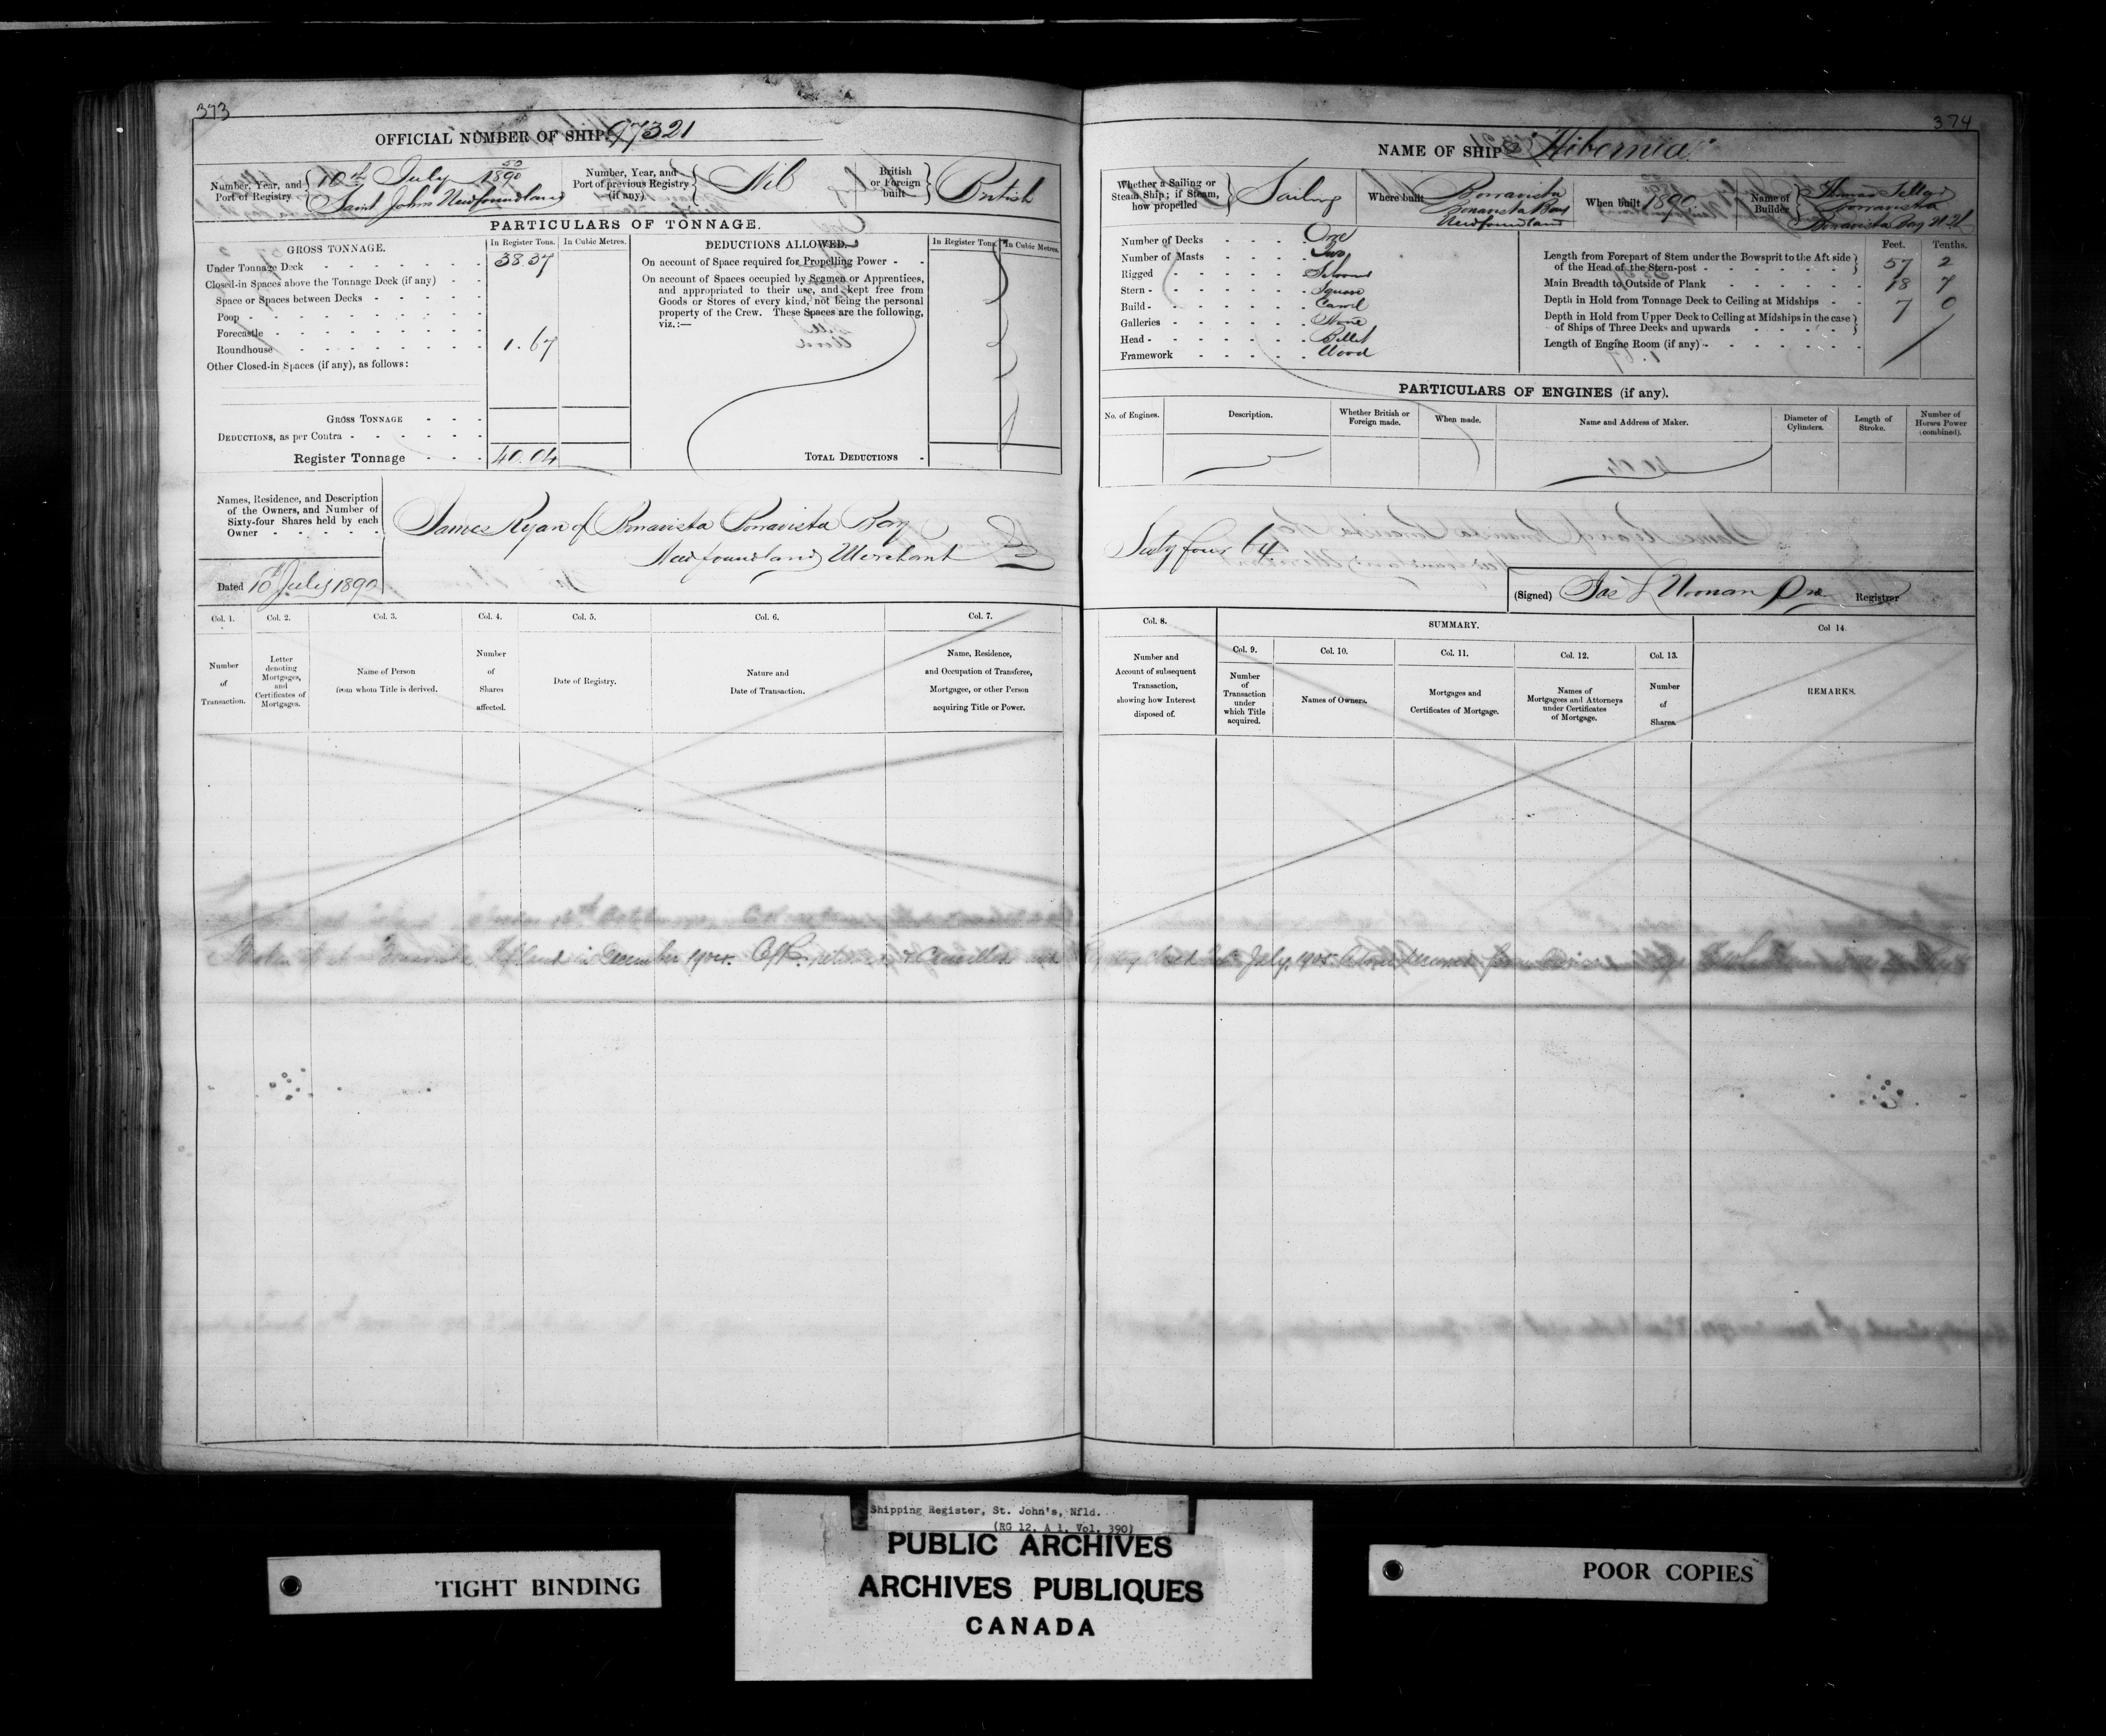 373
OFFICIAL NUMBER OF SHIP 97321
Number, Year, and Port of Registry
10th July 50/1890
Saint John's Newfoundland
Number, Year, and Port of previous Registry (if any)
Nil
British or Foreign built
British
PARTICULARS OF TONNAGE.
GROSS TONNAGE.
In Register Tons. In Cubic Metres.
Under Tonnage Deck 38.37
Closed-in Spaces above the Tonnage Deck (if any)
Space or Spaces between Decks
Poop
Forecastle
Roundhouse 1.67
Other Closed-in Spaces (if any), as follows:
GROSS TONNAGE
DEDUCTIONS, as per Contra
Register Tonnage 40.04
DEDUCTIONS ALLOWED.
In Register Tons. In Cubic Metres.
On account of Space required for Propelling Power
On account of Spaces occupied by Seamen or Apprentices,
and appropriated to their use, and kept free from
Goods or Stores of every kind, not being the personal
property of the Crew. These Spaces are the following,
viz.:—
TOTAL DEDUCTIONS
Names, Residence, and Description
of the Owners, and Number of
Sixty-four Shares held by each
Owner
James Ryan of Bonavista Bonavista Bay
Newfoundland Merchant
Dated 10th July 1890
Col. 1. Col. 2. Col. 3. Col. 4. Col. 5. Col. 6. Col. 7.
Number of Transaction.
Letter denoting Mortgages, and Certificates of Mortgages.
Name of Person from whom Title is derived.
Number of Shares affected.
Date of Registry.
Nature and Date of Transaction.
Name, Residence, and Occupation of Transferee, Mortgagee, or other Person acquiring Title or Power.
374
NAME OF SHIP "Hibernia"
Whether a Sailing or Steam Ship; if Steam, how propelled
Sailing
Where built
Bonavista
Bonavista Bay
Newfoundland
When built 1890
Name of Builder
Bonavista
Bonavista Bay
Number of Decks One
Number of Masts Two
Rigged
Stern Square
Build
Galleries None
Head Billet
Framework Wood
Feet. Tenths.
Length from Forepart of Stem under the Bowsprit to the Aft side
of the Head of the Stern-post 57 2
Main Breadth to Outside of Plank 18 7
Depth in Hold from Tonnage Deck to Ceiling at Midships 7 0
Depth in Hold from Upper Deck to Ceiling at Midships in the case
of Ships of Three Decks and upwards
Length of Engine Room (if any)
PARTICULARS OF ENGINES (if any).
No. of Engines.
Description.
Whether British or Foreign made.
When made.
Name and Address of Maker.
Diameter of Cylinders.
Length of Stroke.
Number of Horses Power (combined).
Sixty four 64
(Signed) Registrar
Col. 8.
SUMMARY.
Col 14.
Col. 9. Col. 10. Col. 11. Col. 12. Col. 13.
Number and Account of subsequent Transaction, showing how Interest disposed of.
Number of Transaction under which Title acquired.
Names of Owners.
Mortgages and Certificates of Mortgage.
Names of Mortgagees and Attorneys under Certificates of Mortgage.
Number of Shares.
REMARKS.
in December
Cancelled
July
Shipping Register, St. John's, Nfld.
(RG 12, A 1, Vol. 390)
PUBLIC ARCHIVES
ARCHIVES PUBLIQUES
CANADA
TIGHT BINDING
POOR COPIES